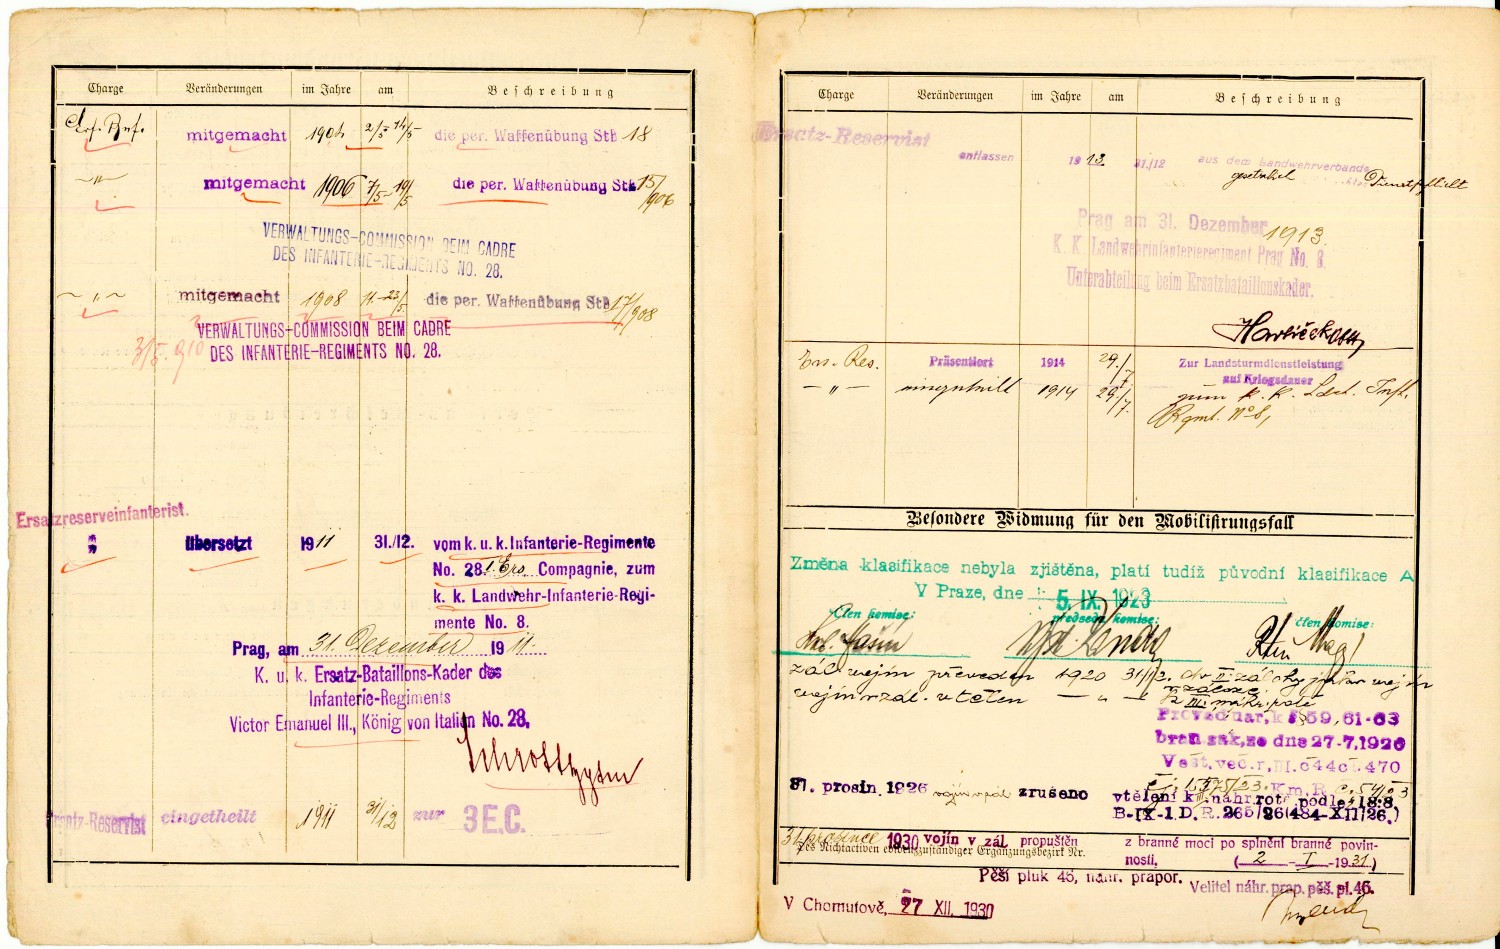 Charge Veränderungen im Jahre am Beschreibung
mitgemacht 1904 2/5-14/5 die per. Waffenübung StB 18
–"– mitgemacht 1906 7/5-19/5 die per. Waffenübung StB 15/906
VERWALTUNGS-COMMISSION BEIM CADRE
DES INFANTERIE-REGIMENTS NO. 28.
–"– mitgemacht 1908 11-23/5 die per. Waffenübung StB 17/908
VERWALTUNGS-COMMISSION BEIM CADRE
DES INFANTERIE-REGIMENTS NO. 28.
3/5 910
Ersatzreserveinfanterist.
" übersetzt 1911 31./12. vom k. u. k. Infanterie-Regimente
No. 28 1. Ers. Compagnie, zum
k. k. Landwehr-Infanterie-Regi-
mente No. 8.
Prag, am 31. Dezember 1911.
K. u. k. Ersatz-Bataillons-Kader des
Infanterie-Regiments
Victor Emanuel III., König von Italien No. 28.
Ersatz-Reservist eingetheilt 1911 31/12 zur 3 E.C.
Charge Veränderungen im Jahre am Beschreibung
Ersatz-Reservist
entlassen 1913 31/12 aus dem Landwehrverbande
Dienstpflicht
Prag am 31. Dezember 1913.
K. K. Landwehrinfanterieregiment Prag No. 8.
Unterabteilung beim Ersatzbataillonskader.
Ers. Res. Präsentiert 1914 29./7. Zur Landsturmdienstleistung
auf Kriegsdauer
–"– eingeteilt 1914 29./7. zum k. k. Ldw. Inft.
Rgmt. No 8,
Besondere Widmung für den Mobilisirungsfall
Změna klasifikace nebyla zjištěna, platí tudíž původní klasifikace A
V Praze, dne 5. IX. 1923
Člen komise: předseda komise: člen komise:
zál. vojín převeden 1920 31/12. do II. zálohy jako vojín
v záloze.
vojín v zál. vtělen –"– k III. náhr. polé
Provedl nar, k § 59, 61-63
bran. zák, ze dne 27-7, 1920
Věst, več. r, III. č 44 čl. 470
31. prosin. 1926 zrušeno vtělení k III. náhr. rotě podle § 18:8.
B-IX-1. D. R. 265/26 (484-XII/26.)
31. prosince 1930 vojín v zál propuštěn z branné moci po splnění branné povin-
nosti, (2-I-1931)
Des Nichtactiven evidenzzuständiger Ergänzungsbezirk Nr.
Pěší pluk 46, náhr. prapor.
Velitel náhr. prap. pěš. pl. 46.
V Chomutově, 27 XII. 1930